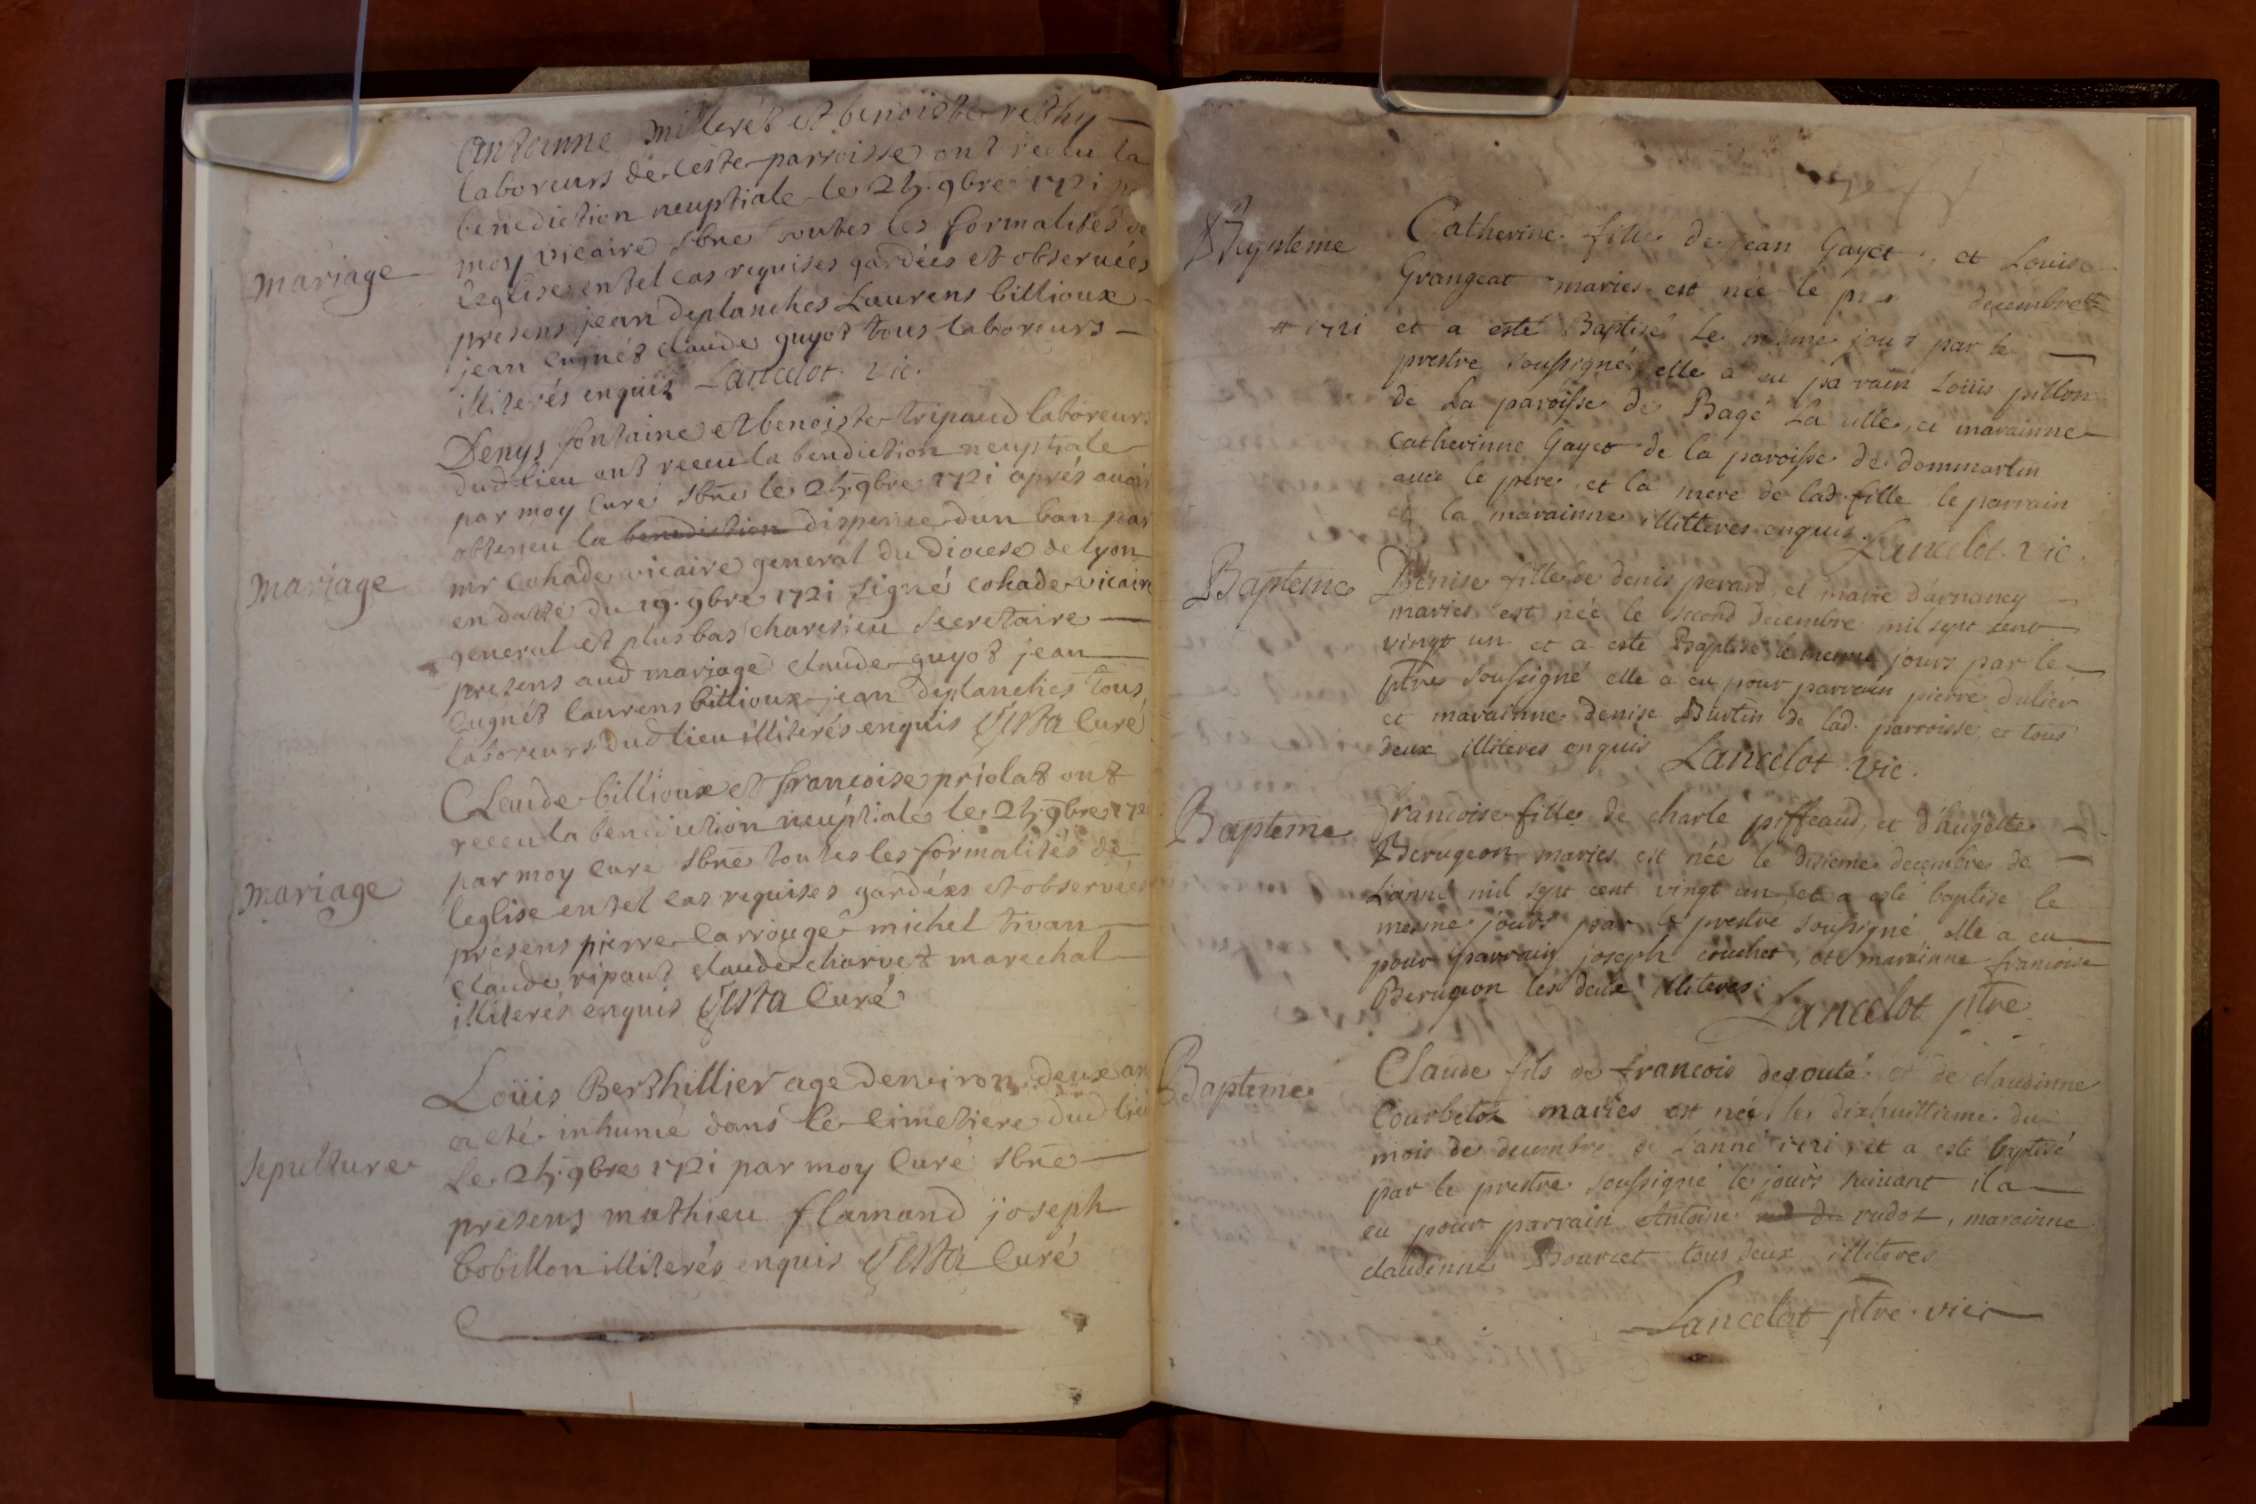 Antoinne Milleret et benoiste rethy
laboreurs de ceste parroisse ont receu la
benediction neuptiale le 25 9bre 1721
moy vicaire sbne toutes les formalités de
mariage
l'eglise en tel cas requises gardées et observées
presens jean deplanches Laurens billioux
jean cugnét claude guyot tous laboreurs
illiterés enquis Lancelot vic.
Denys fontaine et benoiste tripaud laboreurs
dud lieu ont receu la bendiction neuptiale
par moy Curé sbne le 25 9bre 1721 aprés avoir
obteneu la benediction dispense dun ban par
mariage
mr Cohade vicaire general du diocese de lyon
en datte du 19 9bre 1721 signé Cohade vicaire
general et plus bas charesieu secretaire
presens aud mariage claude guyot jean
Cugnét laurens billioux jean deplanches tous
laboreurs dud lieu illiterés enquis Curé
Claude billioux et francoise priolat ont
receu la benediction neuptiale le 25 9bre 172
par moy Cure sbne toutes les formalités de
mariage
leglise en tel cas requises gardées et observées
presens pierre Carrouge michel tivan
Claude ripaut claude charvet marechal
illiterés enquis Curé
Loüis Berthillier age denviron deux an
a eté inhumé dans le Cimetiere dud lieu
sepulture
Le 25 9bre 1721 par moy Curé sbne
presens mathieu flamand joseph
bobillon illiterés enquis Curé
Bapteme
Catherine fille de jean Gayet, et Louise
Grangeat maries est née le decembre
# 1721
et a esté Baptisé Le meme jour par le
prestre soussigné elle a eu parain Louis pillon
de La paroisse de Bagé La ville, et marainne
Catherinne Gayet de la paroisse de dommartin
avec le pere et la mere de lad. fille le parrain
et la marainne illitteres enquis. Lancelot vic.
Bapteme
Denise fille de denis perard, et marie d'arnancy
maries est née le second decembre mil sept cent
vingt un et a esté Baptisé le meme jours par le
ptres soussigné elle a eu pour parrain pierre dulier
et marainne denise Burtin de lad. parroisse, et tous
deux illiteres enquis Lancelot vic.
Bapteme
francoise fille de charle piffeaud, et d'hugette
Berugeon maries est née le disieme decembre de
L'anné mil sept cent vingt un, et a esté baptise le
mesme jours par le prestre soussigné elle a eu
pour parrain joseph couchet, et marainne francoise
Berugeon les deux illiteres. Lancelot ptre
Bapteme
Claude fils de francois degouté et de claudinne
Courbetot maries est née le dixhuittieme du
mois de decembre de L'anné 1721, et a esté baptisé
par le prestre soussigné le jours suivant il a
eu pour parrain Antoine rudot, marainne
claudinne Bourcet tous deux illiteres
Lancelot ptre. vic